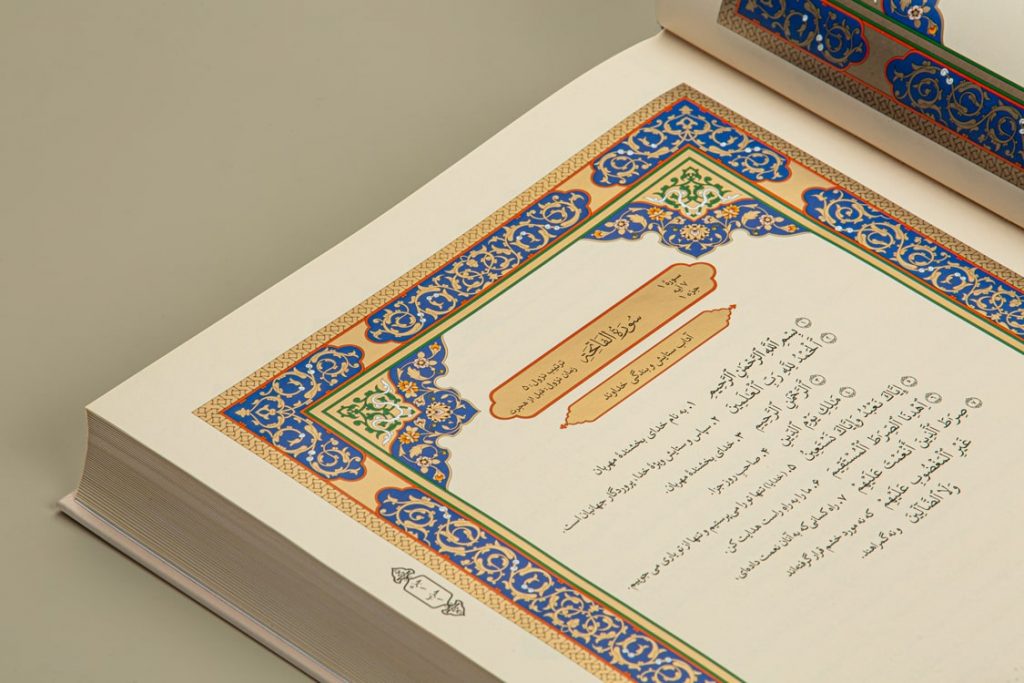 سورهٔ ۱
۷ آیه
جزء ۱
سُورَةُ الفَاتِحَةِ
ترتیب نزول: ۵
زمان نزول: قبل از هجرت
آداب ستایش و بندگی خداوند
بِسْمِ اللَّهِ الرَّحْمَٰنِ الرَّحِيمِ ۱. به نام خدای بخشندهٔ مهربان
الْحَمْدُ لِلَّهِ رَبِّ الْعَالَمِينَ ۲. سپاس و ستایش ویژهٔ خدا، پروردگار جهانیان است.
الرَّحْمَٰنِ الرَّحِيمِ ۳. خدای بخشندهٔ مهربان.
مَالِكِ يَوْمِ الدِّينِ ۴. صاحب روز جزا.
إِيَّاكَ نَعْبُدُ وَإِيَّاكَ نَسْتَعِينُ ۵. (خدایا) تنها تو را می‌پرستیم و تنها از تو یاری می جوییم
اهْدِنَا الصِّرَاطَ الْمُسْتَقِيمَ ۶. ما را به راه راست هدایت کن.
صِرَاطَ الَّذِينَ أَنْعَمْتَ عَلَيْهِمْ ۷. راه کسانی که به آنان نعمت داده‌ای.
غَيْرِ الْمَغْضُوبِ عَلَيْهِمْ که نه مورد خشم قرار گرفته‌اند
وَلَا الضَّالِّينَ و نه گمراهند.